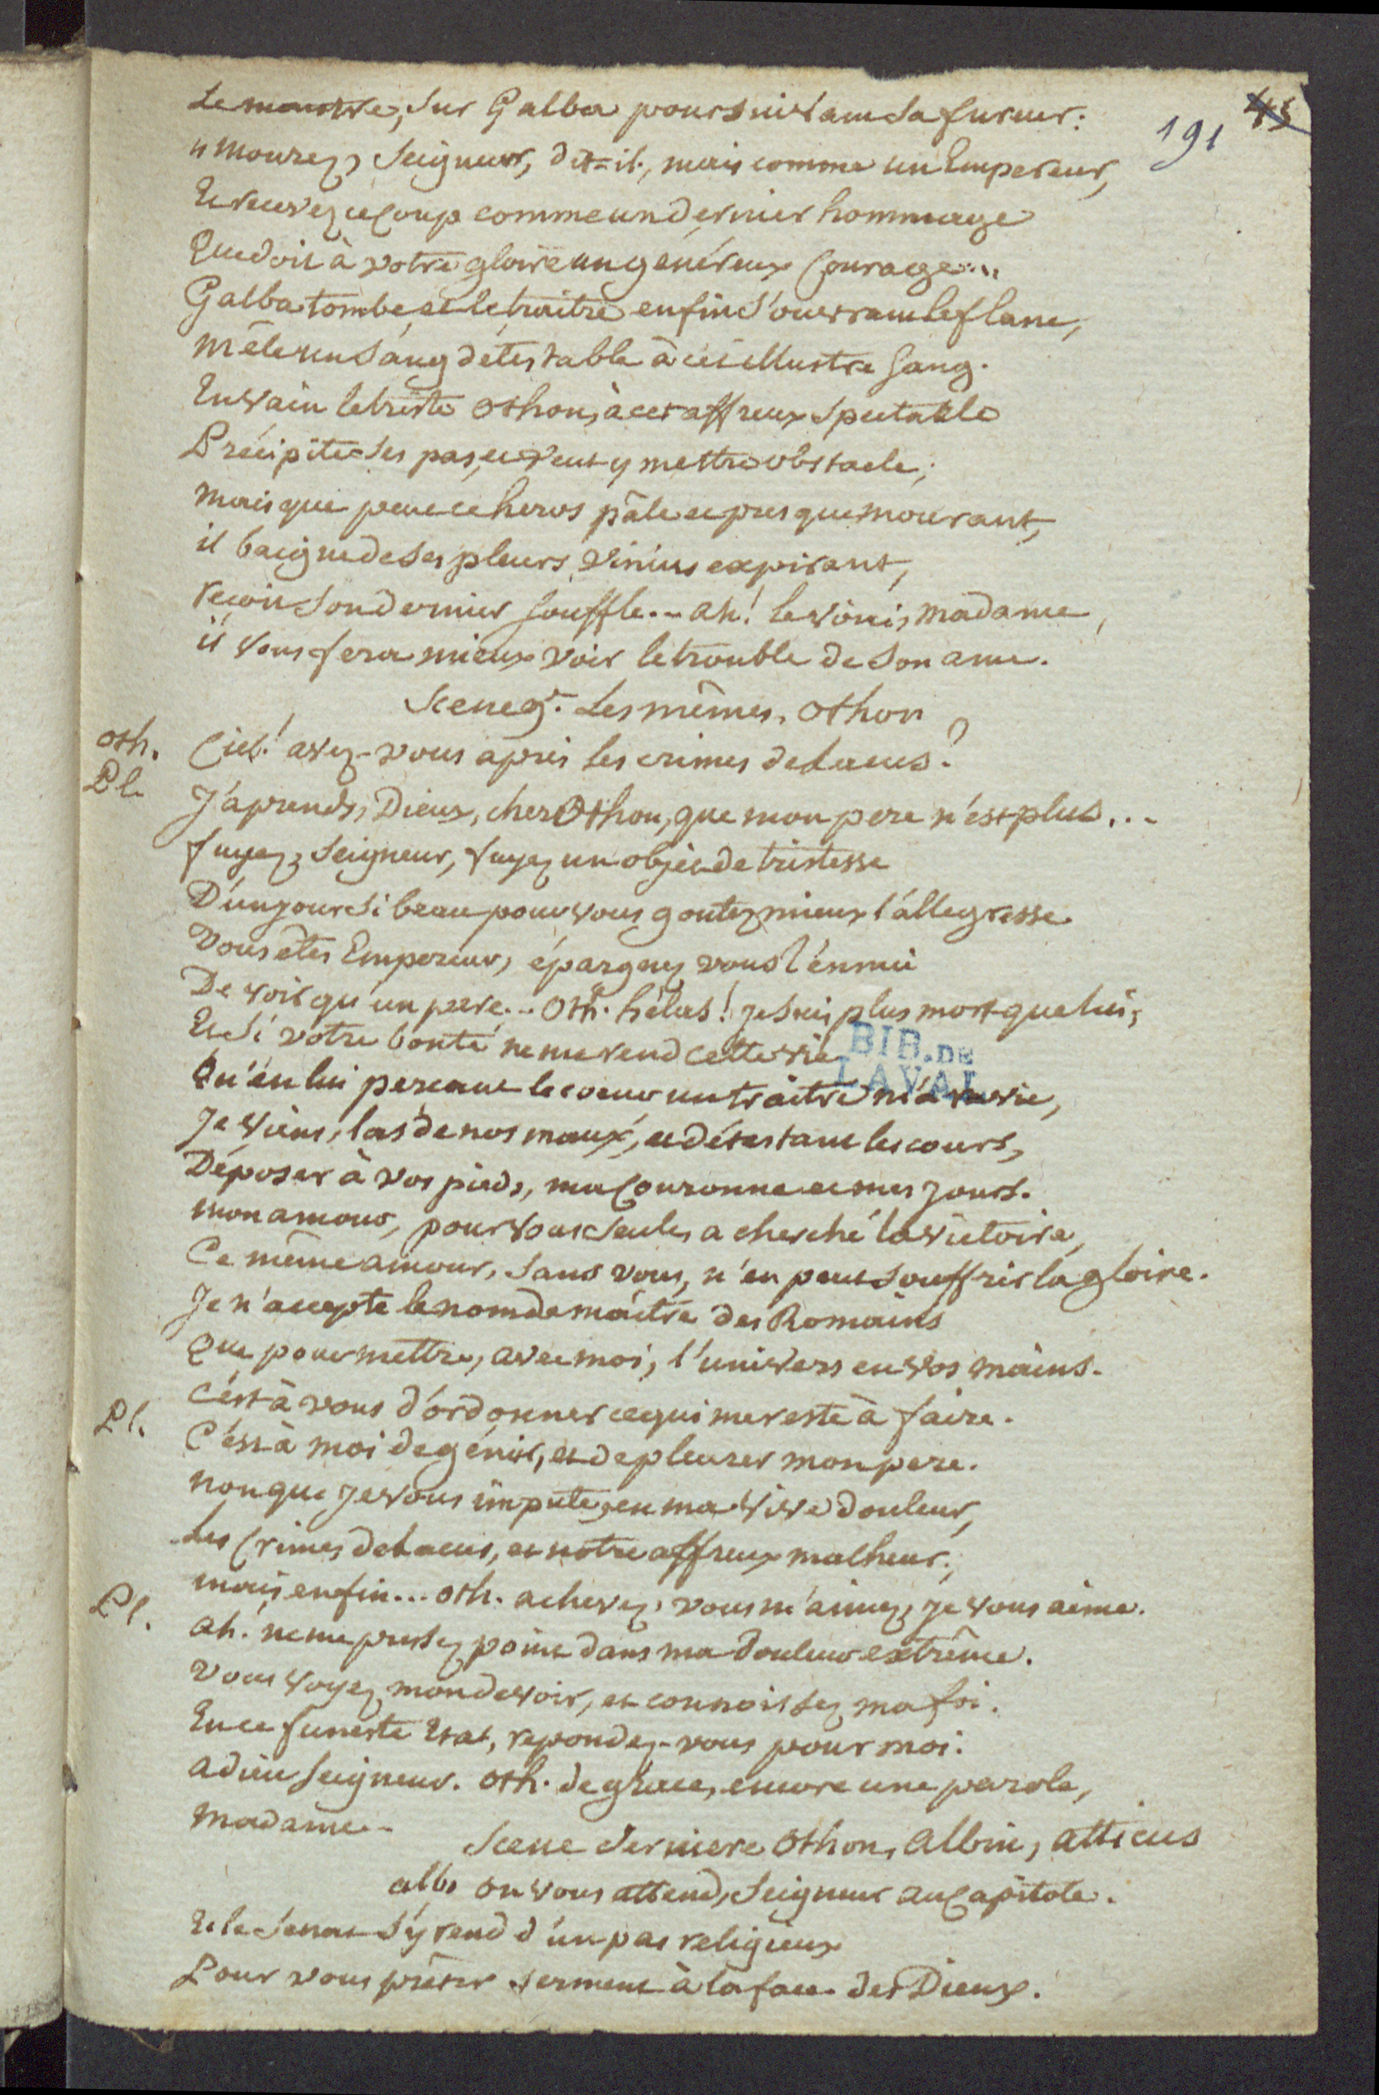 45
191
Le monstre, sur Galba poursuivant sa fureur:
" mourez, Seigneur, dit-il, mais comme un Empereur,
Et recevez ce Coup comme un dernier hommage
Que doit à votre gloire un généreux Courage...
Galba tombe, et le traitre enfin s'ouvrant le flanc,
Mêle un Sang détestable à cet illustre Sang.
En vain le triste Othon, à cet affreux spectacle
Précipite ses pas, et veut y mettre obstacle;
Mais que peut ce heros pâle et presque mourant,
il baigne de ses pleurs Vinius expirant,
reçoit son dernier souffle... ah! le voici, madame,
il vous fera mieux voir le trouble de son ame.
Scene 9e. Les mêmes, Othon
Oth. Ciel! avez-vous apris les crimes de Lacus?
Pl. J'aprends, Dieux, cher Othon, que mon pere n'est plus...
fuyez, Seigneur, fuyez un objet de tristesse
D'un jour si beau pour vous goutez mieux l'allegresse.
Vous êtes Empereur, épargnez vous l'ennui
De voir qu'un pere... Oth. hélas! je suis plus mort que lui;
Et si votre bonté ne me rend cette vie
Qu'en lui percant le coeur un traitre m'a ravie,
Je viens, las de nos maux, et détestant les cours,
Déposer à vos pieds, ma Couronne et mes jours.
mon amour, pour vous seule, a cherché la victoire,
Ce même amour, sans vous, n'en peut souffrir la gloire.
Je n'accepte le nom de maître des Romains
Que pour mettre, avec moi, l'univers en vos mains.
C'est à vous d'ordonner ce qui me reste à faire.
Pl. C'est à moi de gémir, et de pleurer mon pere.
non que je vous impute, en ma vive douleur,
Les Crimes de Lacus, et notre affreux malheur;
mais enfin... Oth. achevez, vous m'aimez, je vous aime.
Pl. Ah! ne me pressez point dans ma douleur extrême.
Vous voyez mon devoir, et connoissez ma foi.
En ce funeste Etat, repondez-vous pour moi.
adieu Seigneur. Oth. de grace, encore une parole,
Madame-
Scene derniere Othon, Albin, atticus
alb. On vous attend, Seigneur au Capitole.
Et le Senat s'y rend d'un pas religieux
Pour vous prêter serment à la face des Dieux.
BIB. DE
LAVAL